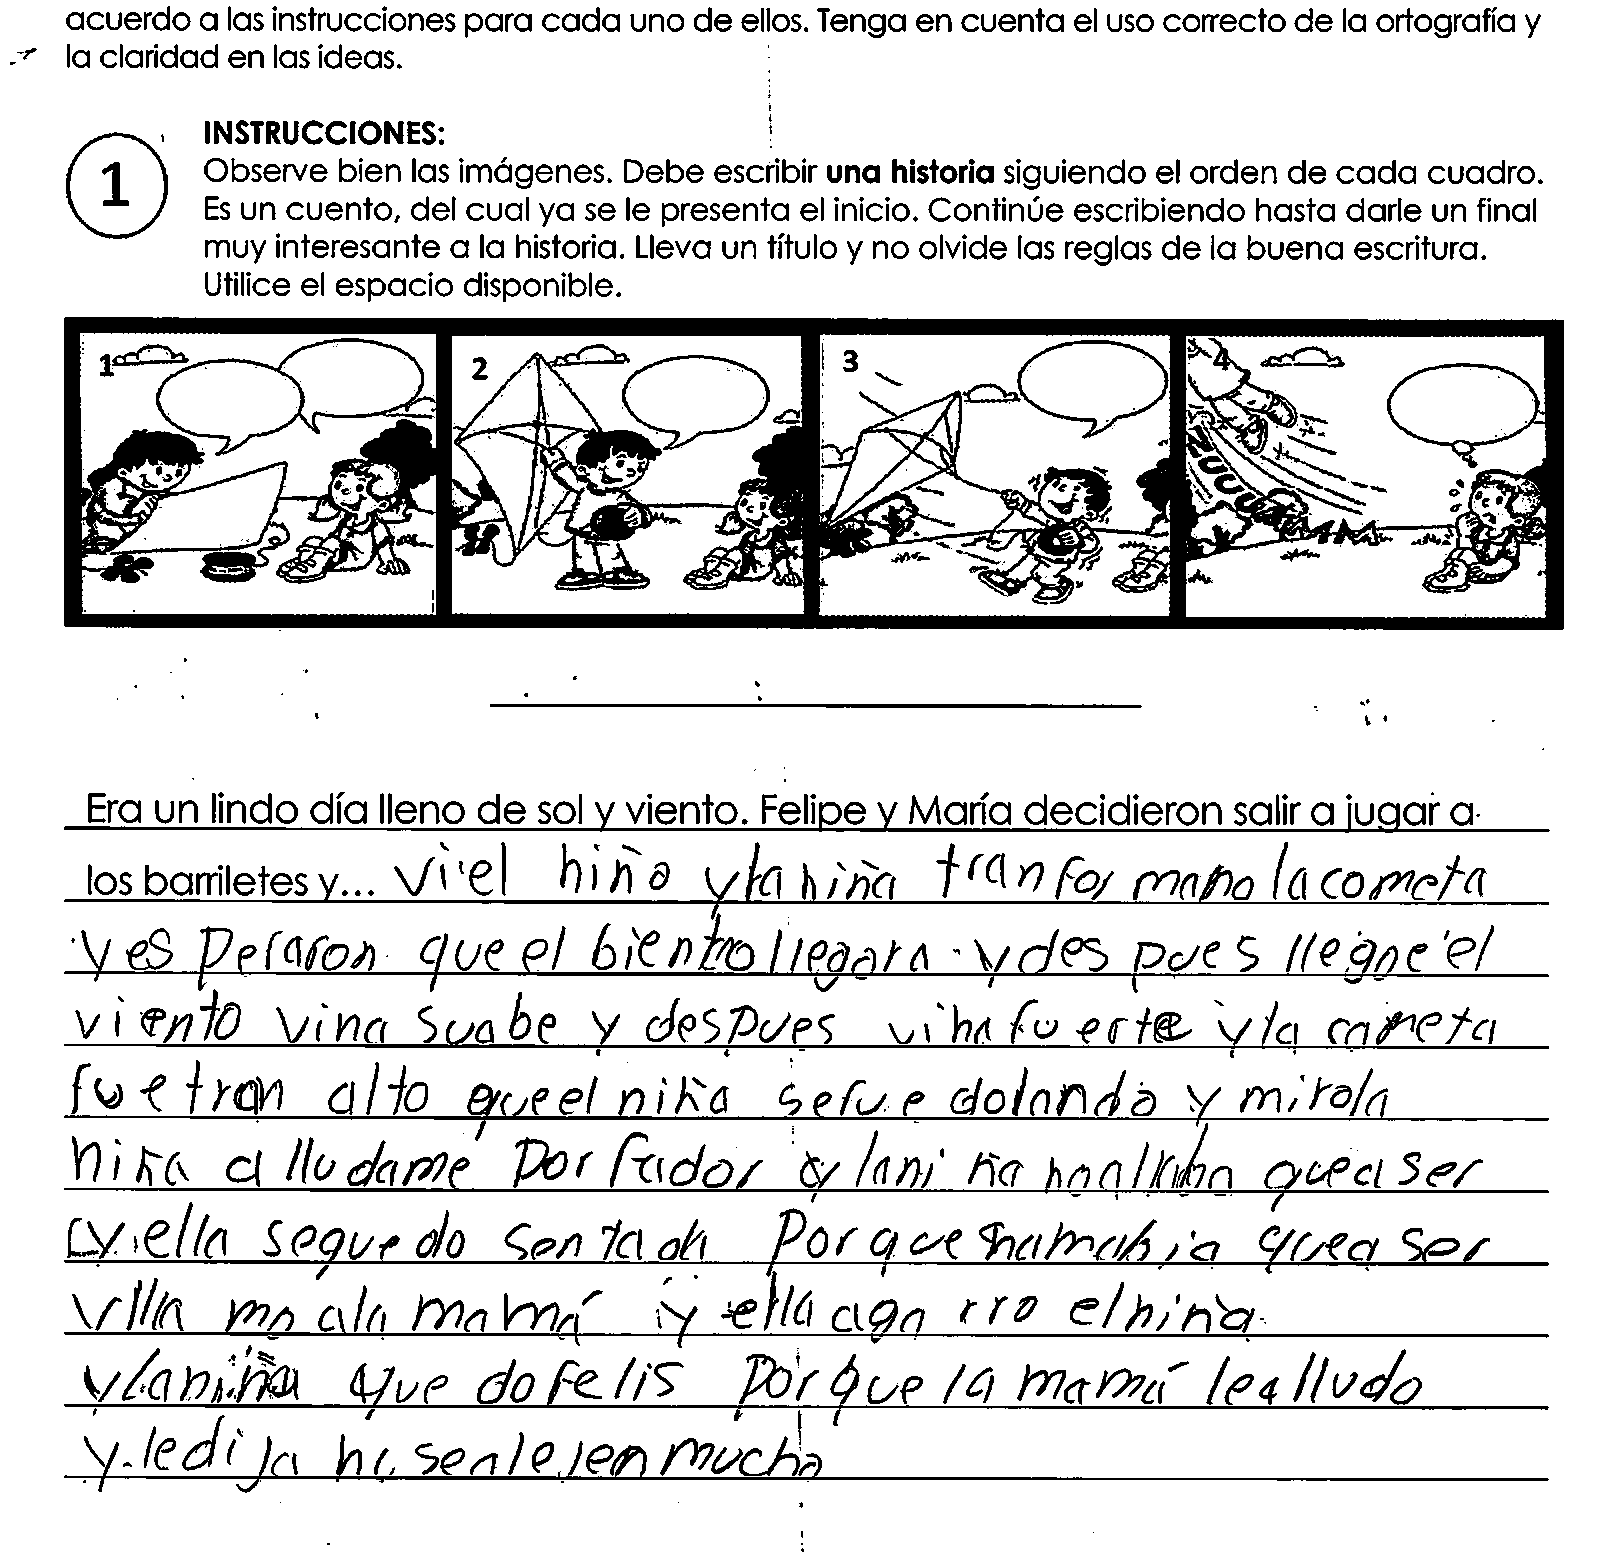 acuerdo a las instrucciones para cada uno de ellos. Tenga en cuenta el uso correcto de la ortografía y
la claridad en las ideas.
INSTRUCCIONES:
1
Observe bien las imágenes. Debe escribir una historia siguiendo el orden de cada cuadro.
Es un cuento, del cual ya se le presenta el inicio. Continúe escribiendo hasta darle un final
muy interesante a la historia. Lleva un título y no olvide las reglas de la buena escritura.
Utilice el espacio disponible.
1 2 3 4
ZUUUUMMM
Era un lindo día lleno de sol y viento. Felipe y María decidieron salir a jugar a
los barriletes y... vi el niño y la niña la cometa
y es peraron que el biento llegara y des pues el
viento vino suabe y despues vino fuerte y la cometa
fue tran alto que el niño se fue dolando y miro la
niña a lludame por fador y la ni ña que a ser
y ella se quedo sentada Por que que a ser
a la mamá y ella aga rro el niño
y la niña que do felis por que la mamá le a lludo
y le dijo no se a le jen mucho